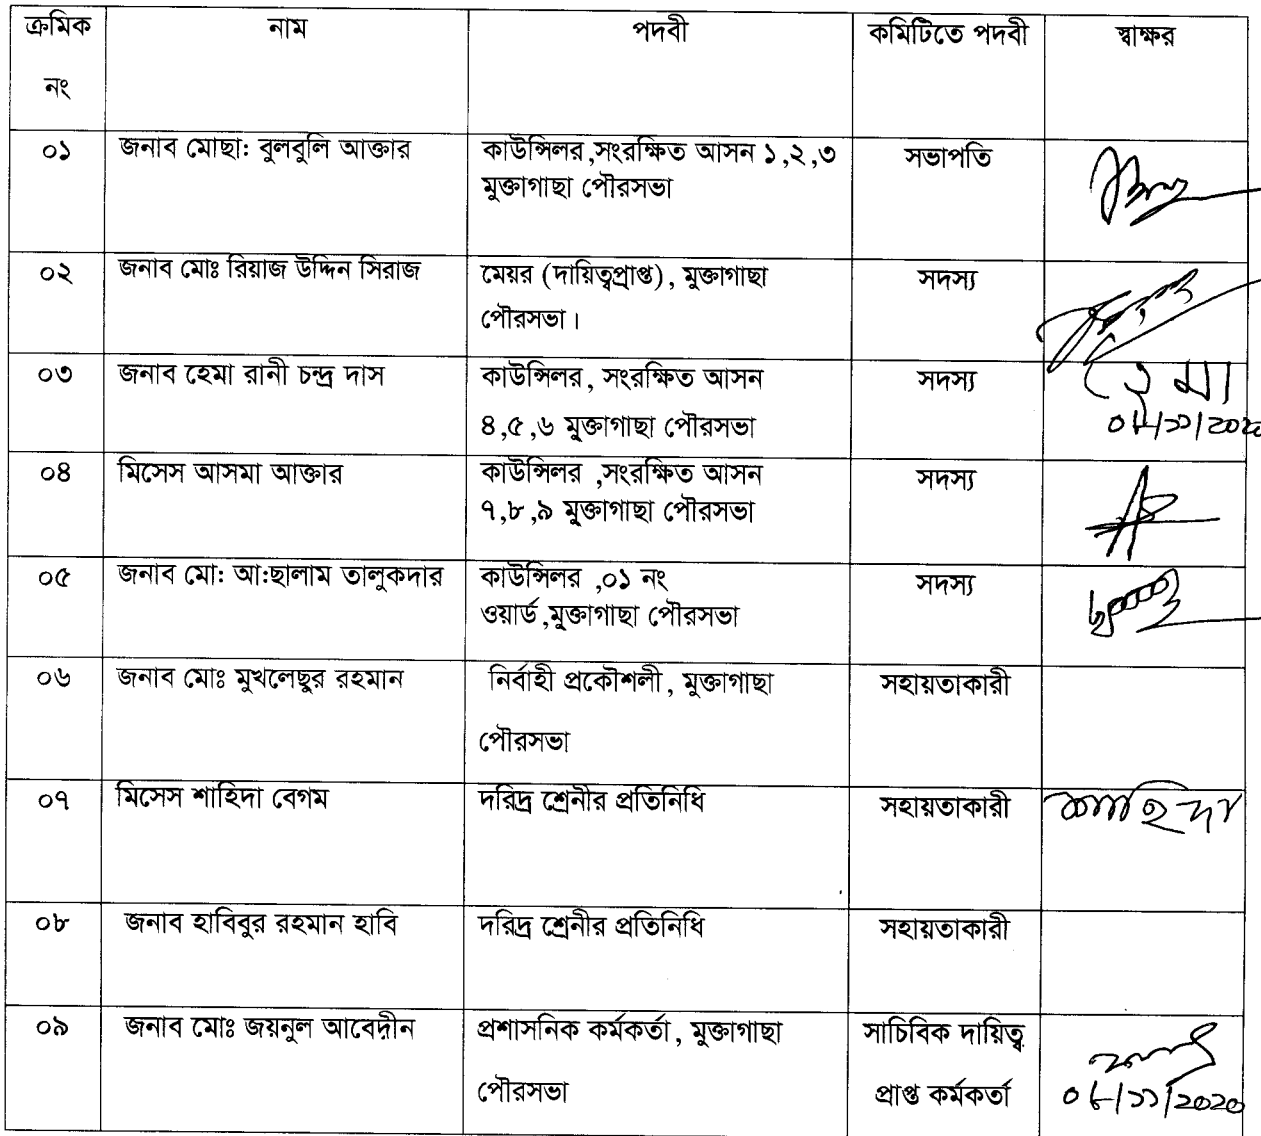 ক্রমিক নং নাম পদবী কমিটিতে পদবী স্বাক্ষর
০১ জনাব মোছা: বুলবুলি আক্তার কাউন্সিলর,সংরক্ষিত আসন ১,২,৩ সভাপতি
মুক্তাগাছা পৌরসভা
০২ জনাব মোঃ রিয়াজ উদ্দিন সিরাজ মেয়র (দায়িত্বপ্রাপ্ত), মুক্তাগাছা সদস্য
পৌরসভা।
০৩ জনাব হেমা রানী চন্দ্র দাস কাউন্সিলর, সংরক্ষিত আসন সদস্য হেমা
৪,৫,৬ মুক্তাগাছা পৌরসভা
০৪ মিসেস আসমা আক্তার কাউন্সিলর ,সংরক্ষিত আসন সদস্য
৭,৮,৯ মুক্তাগাছা পৌরসভা
০৫ জনাব মো: আ:ছালাম তালুকদার কাউন্সিলর ,০১ নং সদস্য
ওয়ার্ড,মুক্তাগাছা পৌরসভা
০৬ জনাব মোঃ মুখলেছুর রহমান নির্বাহী প্রকৌশলী, মুক্তাগাছা সহায়তাকারী
পৌরসভা
০৭ মিসেস শাহিদা বেগম দরিদ্র শ্রেনীর প্রতিনিধি সহায়তাকারী শাহিদা
০৮ জনাব হাবিবুর রহমান হাবি দরিদ্র শ্রেনীর প্রতিনিধি সহায়তাকারী
০৯ জনাব মোঃ জয়নুল আবেদীন প্রশাসনিক কর্মকর্তা, মুক্তাগাছা সাচিবিক দায়িত্ব
পৌরসভা প্রাপ্ত কর্মকর্তা